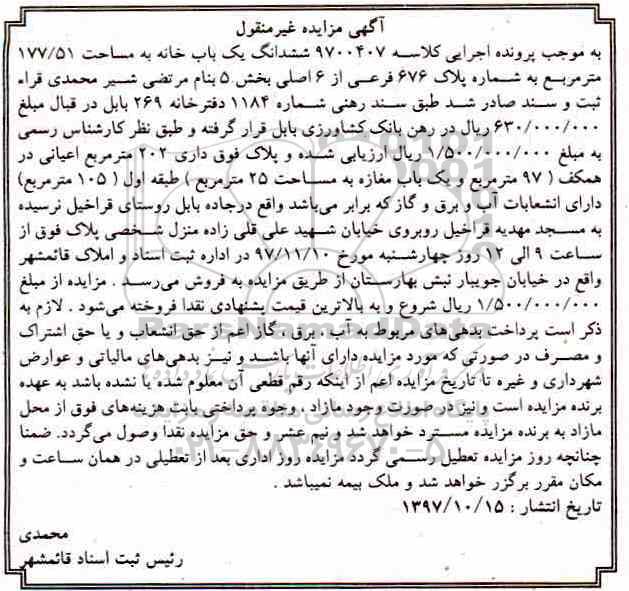 آگهی مزایده غیرمنقول
به موجب پرونده اجرایی کلاسه ۹۷۰۰۴۰۷ ششدانگ یک باب خانه به مساحت ۱۷۷/۵۱
مترمربع به شماره پلاک ۶۷۶ فرعی از ۶ اصلی بخش ۵ بنام مرتضی شیر محمدی قراء
ثبت و سند صادر شد طبق سند رهنی شماره ۱۱۸۴ دفترخانه ۲۶۹ بابل در قبال مبلغ
۶۳۰/۰۰۰/۰۰۰ ریال در رهن بانک کشاورزی بابل قرار گرفته و طبق نظر کارشناس رسمی
به مبلغ ۱/۵۰۰/۰۰۰/۰۰۰ ریال ارزیابی شده و پلاک فوق داری ۲۰۲ مترمربع اعیانی در
همکف ( ۹۷ مترمربع و یک باب مغازه به مساحت ۲۵ مترمربع ) طبقه اول ( ۱۰۵ مترمربع)
دارای انشعابات آب و برق و گاز که برابر می‌باشد واقع درجاده بابل روستای قراخیل نرسیده
به مسجد مهدیه قراخیل روبروی خیابان شهید علی قلی زاده منزل شخصی پلاک فوق از
ساعت ۹ الی ۱۲ روز چهارشنبه مورخ ۹۷/۱۱/۱۰ در اداره ثبت اسناد و املاک قائمشهر
واقع در خیابان جویبار نبش بهارستان از طریق مزایده به فروش می‌رسد . مزایده از مبلغ
۱/۵۰۰/۰۰۰/۰۰۰ ریال شروع و به بالاترین قیمت پشنهادی نقدا فروخته می‌شود . لازم به
ذکر است پرداخت بدهی‌های مربوط به آب ، برق ، گاز اعم از حق انشعاب و یا حق اشتراک
و مصرف در صورتی که مورد مزایده دارای آنها باشد و نیز بدهی‌های مالیاتی و عوارض
شهرداری و غیره تا تاریخ مزایده اعم از اینکه رقم قطعی آن معلوم شده یا نشده باشد به عهده
برنده مزایده است و نیز در صورت وجود مازاد ، وجوه پرداختی بابت هزینه‌های فوق از محل
مازاد به برنده مزایده مسترد خواهد شد و نیم عشر و حق مزایده نقدا وصول می‌گردد. ضمنا
چنانچه روز مزایده تعطیل رسمی گردد مزایده روز اداری بعد از تعطیلی در همان ساعت و
مکان مقرر برگزر خواهد شد و ملک بیمه نمیباشد .
تاریخ انتشار : ۱۳۹۷/۱۰/۱۵
محمدی
رئیس ثبت اسناد قائمشهر
ParsNamadData
۰۲۱-۸۸۳۴۹۶۷۰-۵